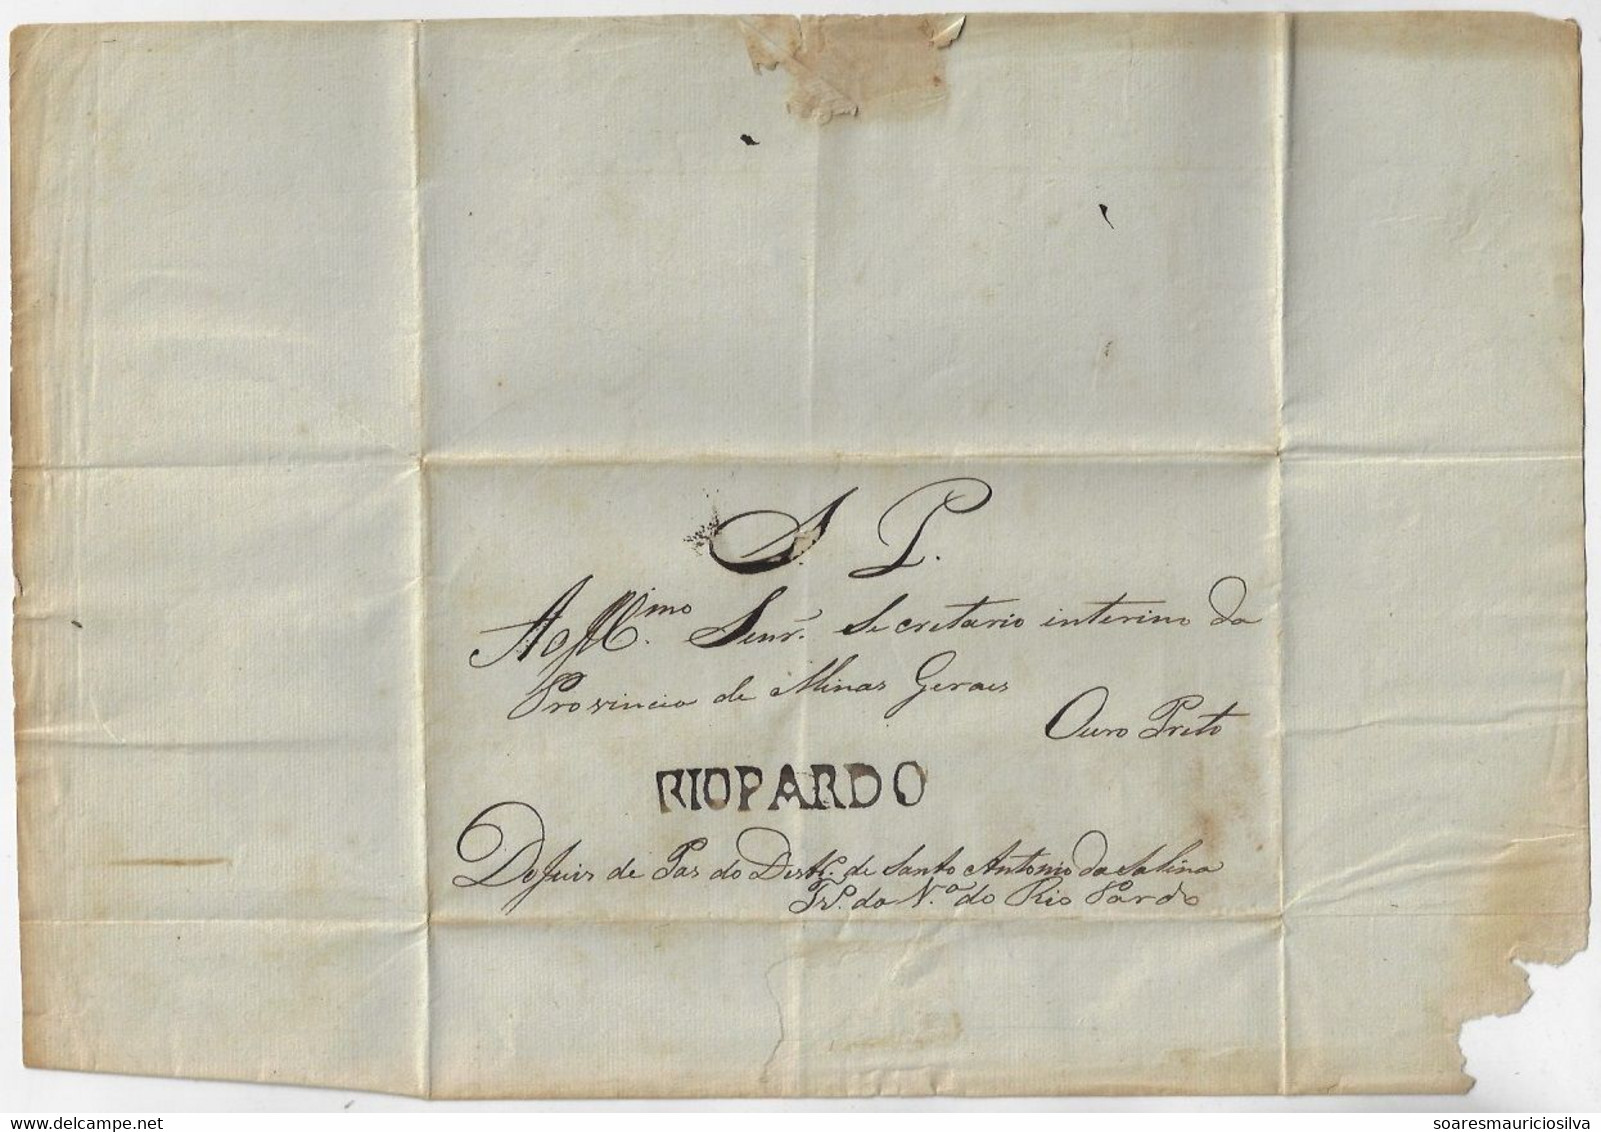 S. P.
Ao Ill.mo Senr. Secretario interino da
Provincia de Minas Geraes
Ouro Preto
RIOPARDO
Do Juis de Pas do Destr. de Santo Antonio da Salina
Tr. da V.a do Rio Pardo
soaresmauriciosilva